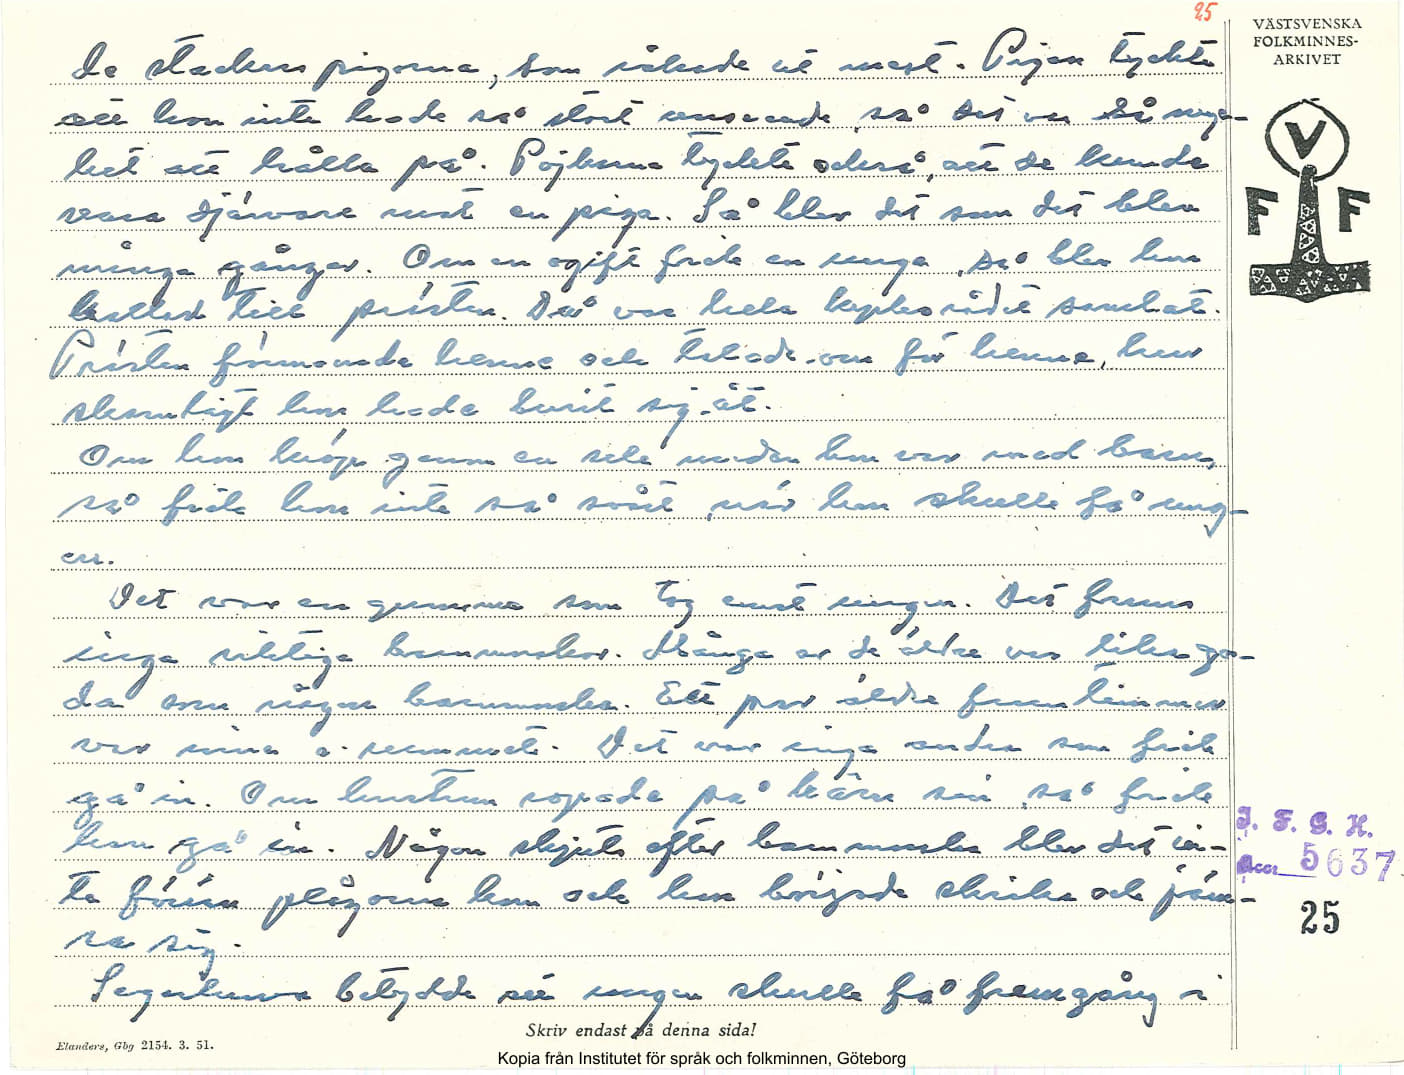 25
VÄSTSVENSKA
FOLKMINNES-
ARKIVET
de stackars pigorna, som råkade ut mest. Pigan tyckte
att hon inte hade så stort anseende, så det var så myc-
ket att hålla på. Pojkarna tyckte också, att de kunde
vara djärvare mot en piga. Så blev det som det blev
många gånger. Om en ogift fick en unge, så blev hon
kallad till prästen. Då var hela kyrkorådet samlat.
Prästen förmanade henne och talade om för henne, hur
skamligt hon hade burit sig åt.
Om hon kröp genom en sele medan hon var med barn,
så fick hon inte så svårt, när hon skulle få ung-
en.
Det var en gumma som tog emot ungen. Det fanns
inga riktiga barnmorskor. Många av de äldre var lika go-
da som någon barnmorska. Ett par äldre fruntimmer
var inne i rummet. Det var inga andra som fick
gå in. Om hustrun ropade på kärn sin, så fick
han gå in. Någon skjuts efter barnmorska blev det in-
te förrän plågorna kom och hon började skrika och jäm-
ra sig.
Segerhuva betydde att ungen skulle få framgång i
V
F F
J. F. G. H.
Acc 5637
25
Skriv endast på denna sida!
Elanders, Gbg 2154. 3. 51.
Kopia från Institutet för språk och folkminnen, Göteborg